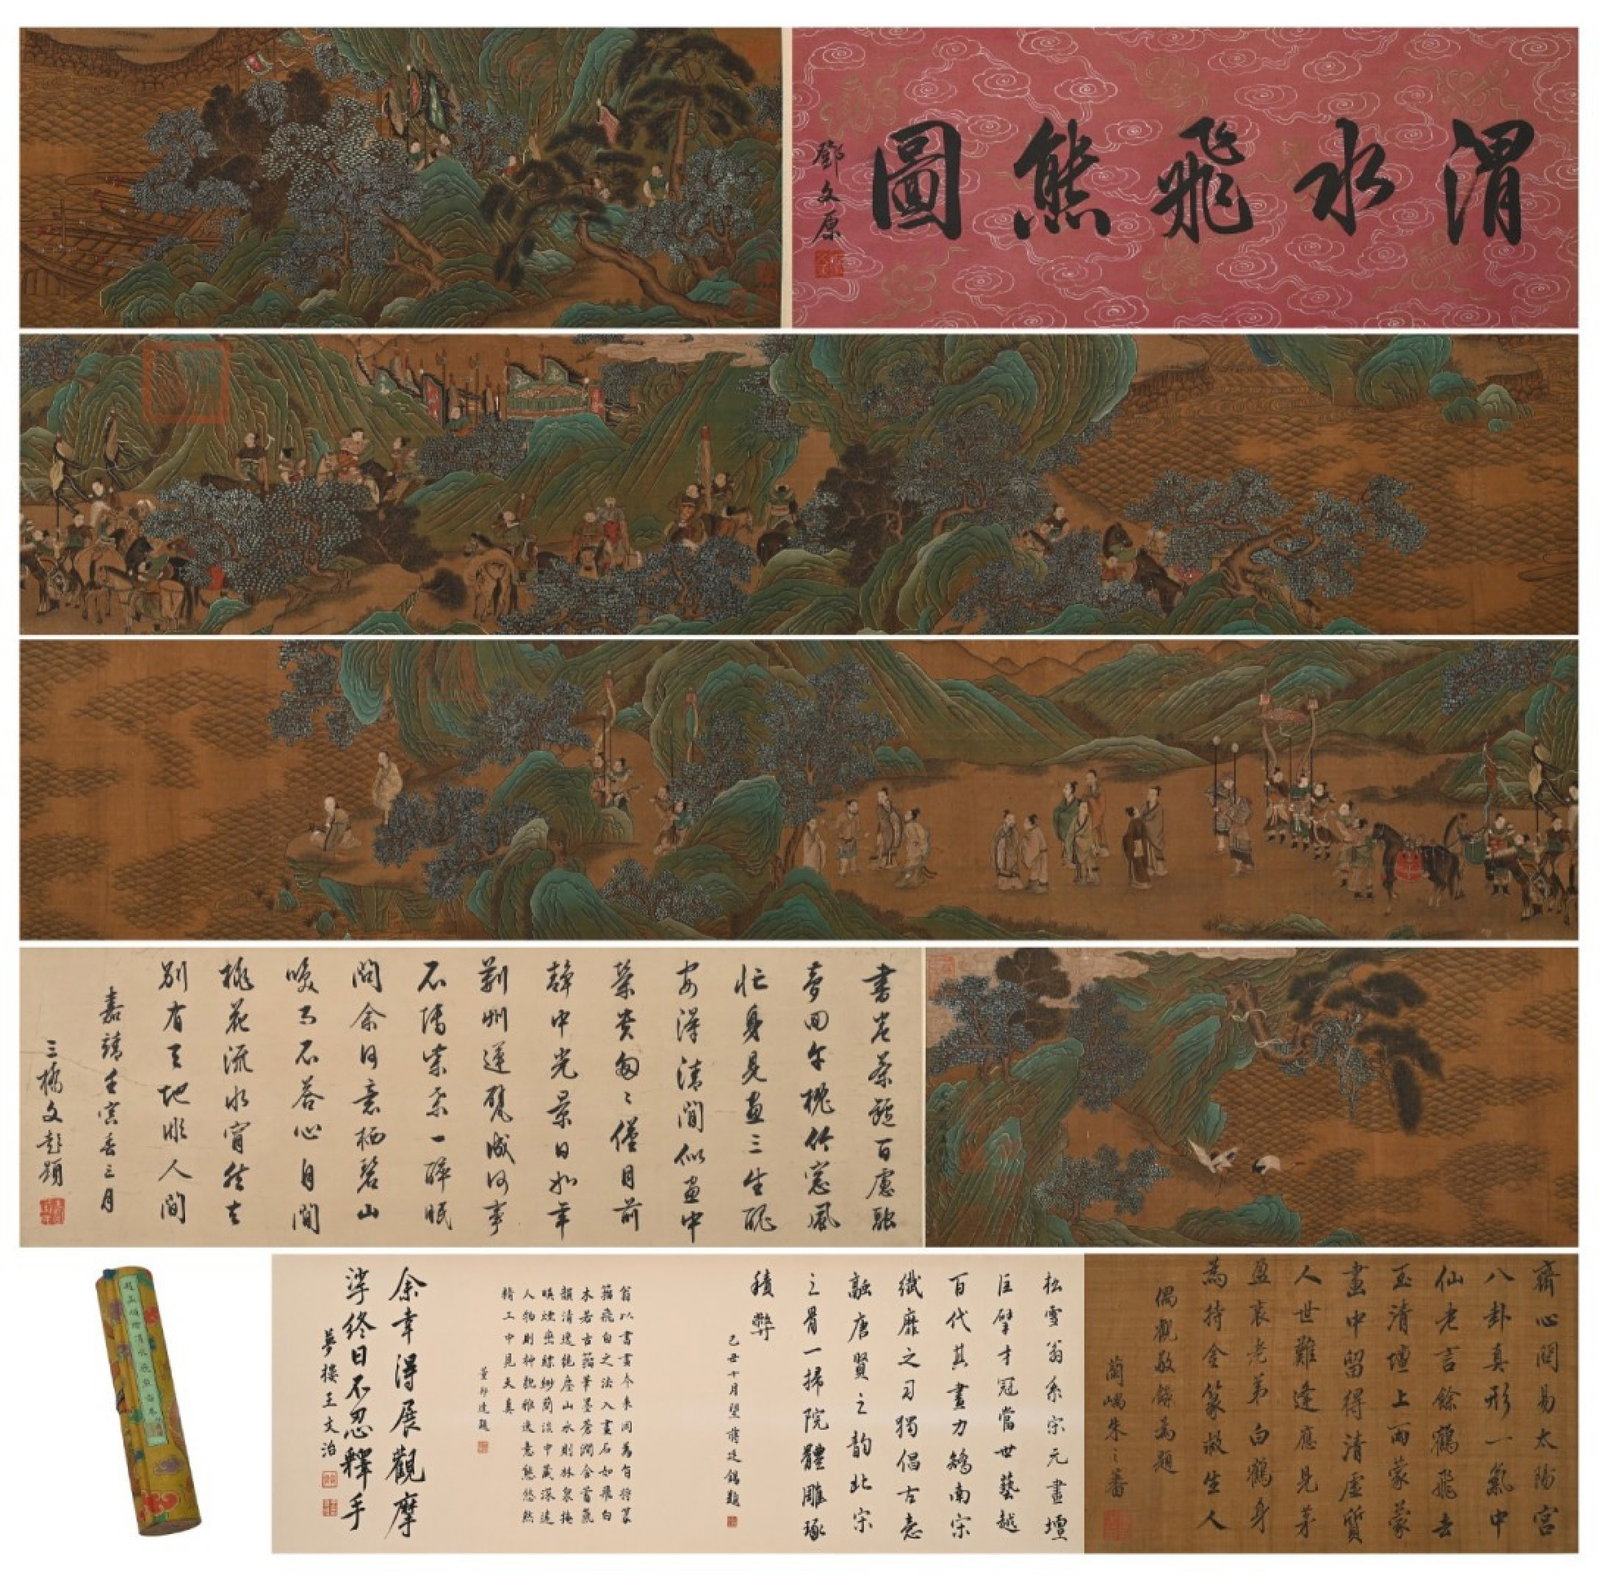 渭水飛熊圖
鄧文原
書卷茶甌百慮融
夢回午枕竹窓風
忙身見畫三生醜
安得清閒似畫中
榮貴匆匆僅目前
靜中光景日如年
荊州運甓成何事
不隔柴桑一醉眠
問余何意栖碧山
笑而不答心自閒
桃花流水窅然去
別有天地非人間
嘉靖壬寅春三月
三橋文彭題
齋心閱易太陽宮
八卦真形一氣中
仙老言餘鶴飛去
玉清壇上雨蒙蒙
畫中留得清虛質
人世難逢應見茅
盈衷老弟白鶴身
為持金籙救生人
偶觀敬録為題
蘭嵎朱之蕃
松雪翁系宋元畫壇
巨擘才冠當世藝越
百代其畫力矯南宋
纖靡之習獨倡古意
融唐賢之韵北宋
之骨一掃院體雕琢
積弊
己丑十月望 蔣廷錫題
翁以書畫今來洞為自將篆
籀飛白之法入畫石如飛白
木若古籀筆墨蒼潤含蓄氣
韻清逸絕塵山水則林泉掩
映煙巒縹緲簡淡中蘊深遠
人物則神貌雅逸意態悠然
精工中見天真
董邦達題
余幸得展觀摩
挲終日不忍釋手
夢樓王文治